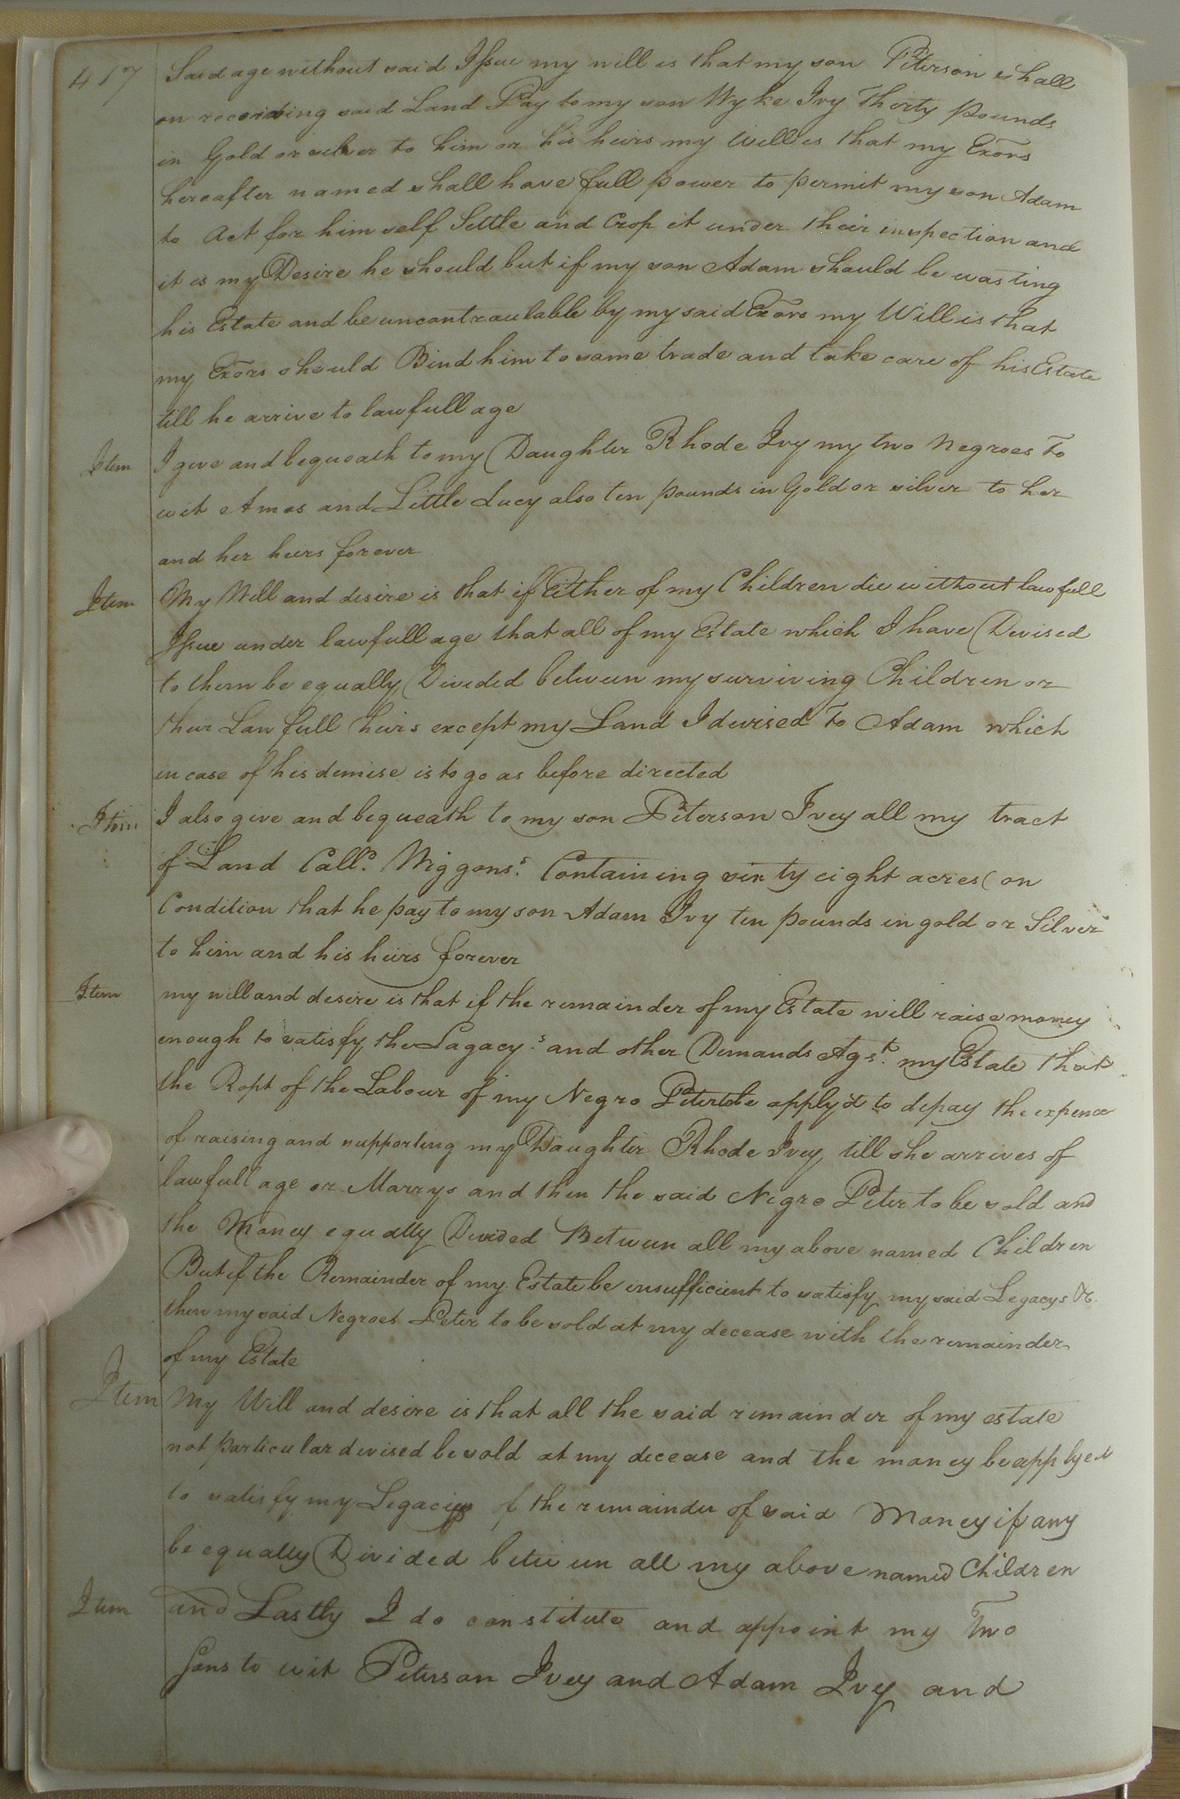 417 Said age without said Issue my will is that my son Peterson shall
on receiving said Land Pay to my son Wyke Ivy Thirty pounds
in Gold or silver to him or his heirs my Will is that my Exors
hereafter named shall have full power to permit my son Adam
to Act for him self Settle and Crop it under their inspection and
it is my Desire he should but if my son Adam should be wasting
his Estate and be uncontraulable by my said Exors my Will is that
my Exors should Bind him to some trade and take care of his Estate
till he arrive to lawfull age
Item I give and bequeath to my Daughter Rhode Ivy my two Negroes To
wit Amos and Little Lucy also ten pounds in Gold or silver to her
and her heirs forever
Item My Will and desire is that if Either of my Children die without lawfull
Issue under lawfull age that all of my Estate which I have Devised
to them be equally Divided between my surviving Children or
their Law full heirs except my Land I devised To Adam which
in case of his demise is to go as before directed
Item I also give and bequeath to my son Peterson Ivey all my tract
of Land Calld. Wiggons's Containing sixty eight acres on
Condition that he pay to my son Adam Ivy ten pounds in gold or Silver
to him and his heirs forever
Item my will and desire is that if the remainder of my Estate will raise money
enough to satisfy the Lagacy's and other Demands Agst. my Estate that
the Ropt of the Labour of my Negro Peter be apply'd to depay the expence
of raising and supporting my Daughter Rhode Ivey till she arrives of
lawfull age or Marrys and then the said Negro Peter to be sold and
the Money equally Divided Between all my above named Children
But if the Remainder of my Estate be insufficient to satisfy my said Legacys &c.
then my said Negroes Peter to be sold at my decease with the remainder
of my Estate
Item My Will and desire is that all the said remainder of my estate
not particular devised be sold at my decease and the money be applyed
to satisfy my Legacies if the remainder of said Money if any
be equally Divided between all my above named Children
Item and Lastly I do constitute and appoint my Two
Sons to wit Peterson Ivey and Adam Ivy and